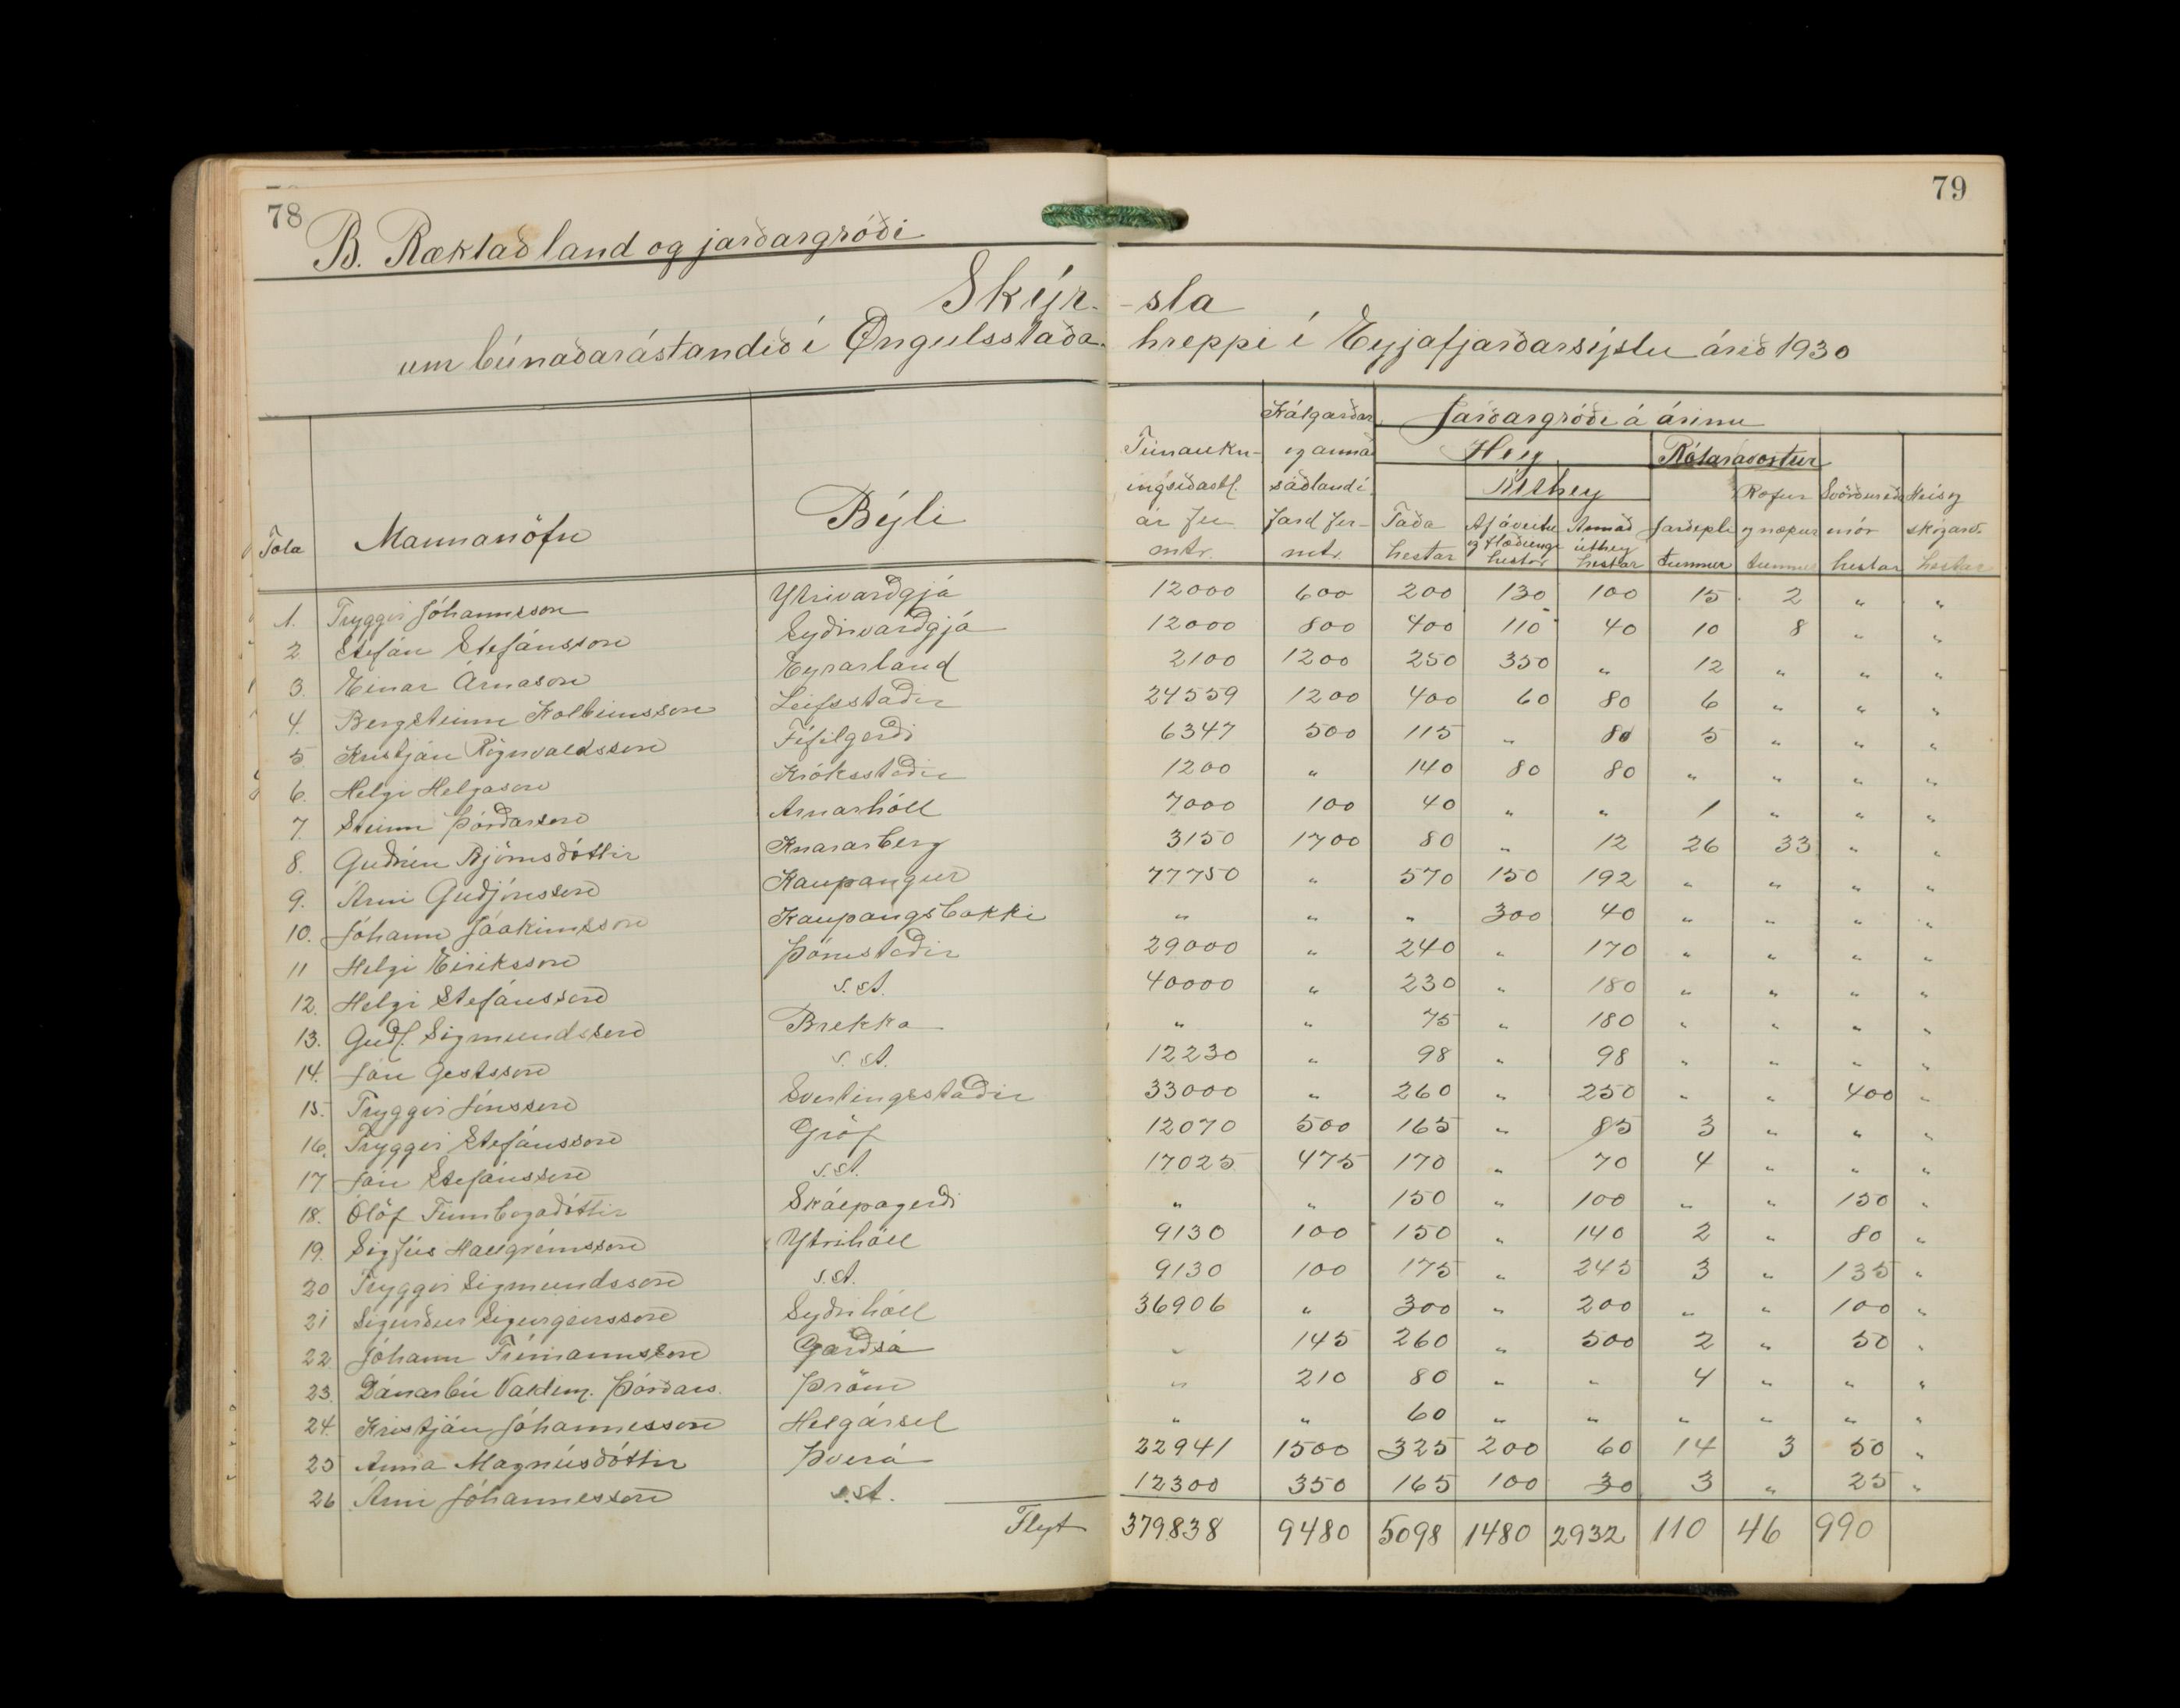 78
79
B. Ræktað land og jarðargróði
Skýr- -sla
um búnaðarástandið í Öngulsstaða- hreppi í Eyjafjarðarsýslu árið 1930
Tala Mannanöfn Býli Túnaukn-ing síðastl. ár Fer mtr. Kálgarðar og annað sáðland í Jarð Fer-mtr. Jarðargróði á árinu
Hey Rótarávöxtur
Taða hestar Úthey Af áveitu og flæðiengi hestar Annað úthey hestar Jarðepli tunnur Rófur og næpur tunnur Svörður eða mór hestar Hrís og skógarv. hestar
1. Tryggvi Jóhannsson Ytrivarðgjá 12000 600 200 130 100 15 2 " "
2 Stefán Stefánsson Syðrivarðgjá 12000 800 400 110 40 10 8 " "
3. Einar Árnason Eyrarland 2100 1200 250 350 " 12 " " "
4. Bergsteinn Kolbeinsson Leifsstaðir 24559 1200 400 60 80 6 " " "
5. Kristján Rögnvaldsson Fífilgerði 6347 500 115 " 80 5 " " "
6. Helgi Helgason Króksstaðir 1200 " 140 80 80 " " " "
7. Steinn Þórðarson Arnarhóll 7000 100 40 " " 1 " " "
8. Guðrún Björnsdóttir Knararberg 3150 1700 80 " 12 26 33 " "
9. Árni Guðjónsson Kaupangur 77750 " 570 150 192 " " " "
10. Jóhann Jóakimsson Kaupangsbakki " " " 300 40 " " " "
11 Helgi Eiríksson Þórustaðir 29000 " 240 " 170 " " " "
12. Helgi Stefánsson s.st. 40000 " 230 " 180 " " " "
13. Guðl. Sigmundsson Brekka " " 75 " 180 " " " "
14. Jón Gestsson s.st. 12230 " 98 " 98 " " " "
15. Tryggvi Jónsson Svertingsstaðir 33000 " 260 " 250 " " 400 "
16. Tryggvi Stefánsson Gröf 12070 500 165 " 85 3 " " "
17 Jón Stefánsson s.st. 17025 475 170 " 70 4 " " "
18. Ólöf Finnbogadóttir Skálpagerði " " 150 " 100 " " 150 "
19. Sigfús Hallgrímsson Ytrihóll 9130 100 150 " 140 2 " 80 "
20 Tryggvi Sigmundsson s.st. 9130 100 175 " 245 3 " 135 "
21 Sigurður Sigurgeirsson Syðrihóll 36906 " 300 " 200 " " 100 "
22 Jóhann Frímannsson Garðsá " 145 260 " 500 2 " 50 "
23. Dánarbú Valdim. Þórðars. Þröm " 210 80 " " 4 " " "
24. Kristján Jóhannesson Helgársel " " 60 " " " " " "
25 Anna Magnúsdóttir Þverá 22941 1500 325 200 60 14 3 50 "
26 Árni Jóhannesson s.st. 12300 350 165 100 30 3 " 25 "
Flyt 379838 9480 5098 1480 2932 110 46 990